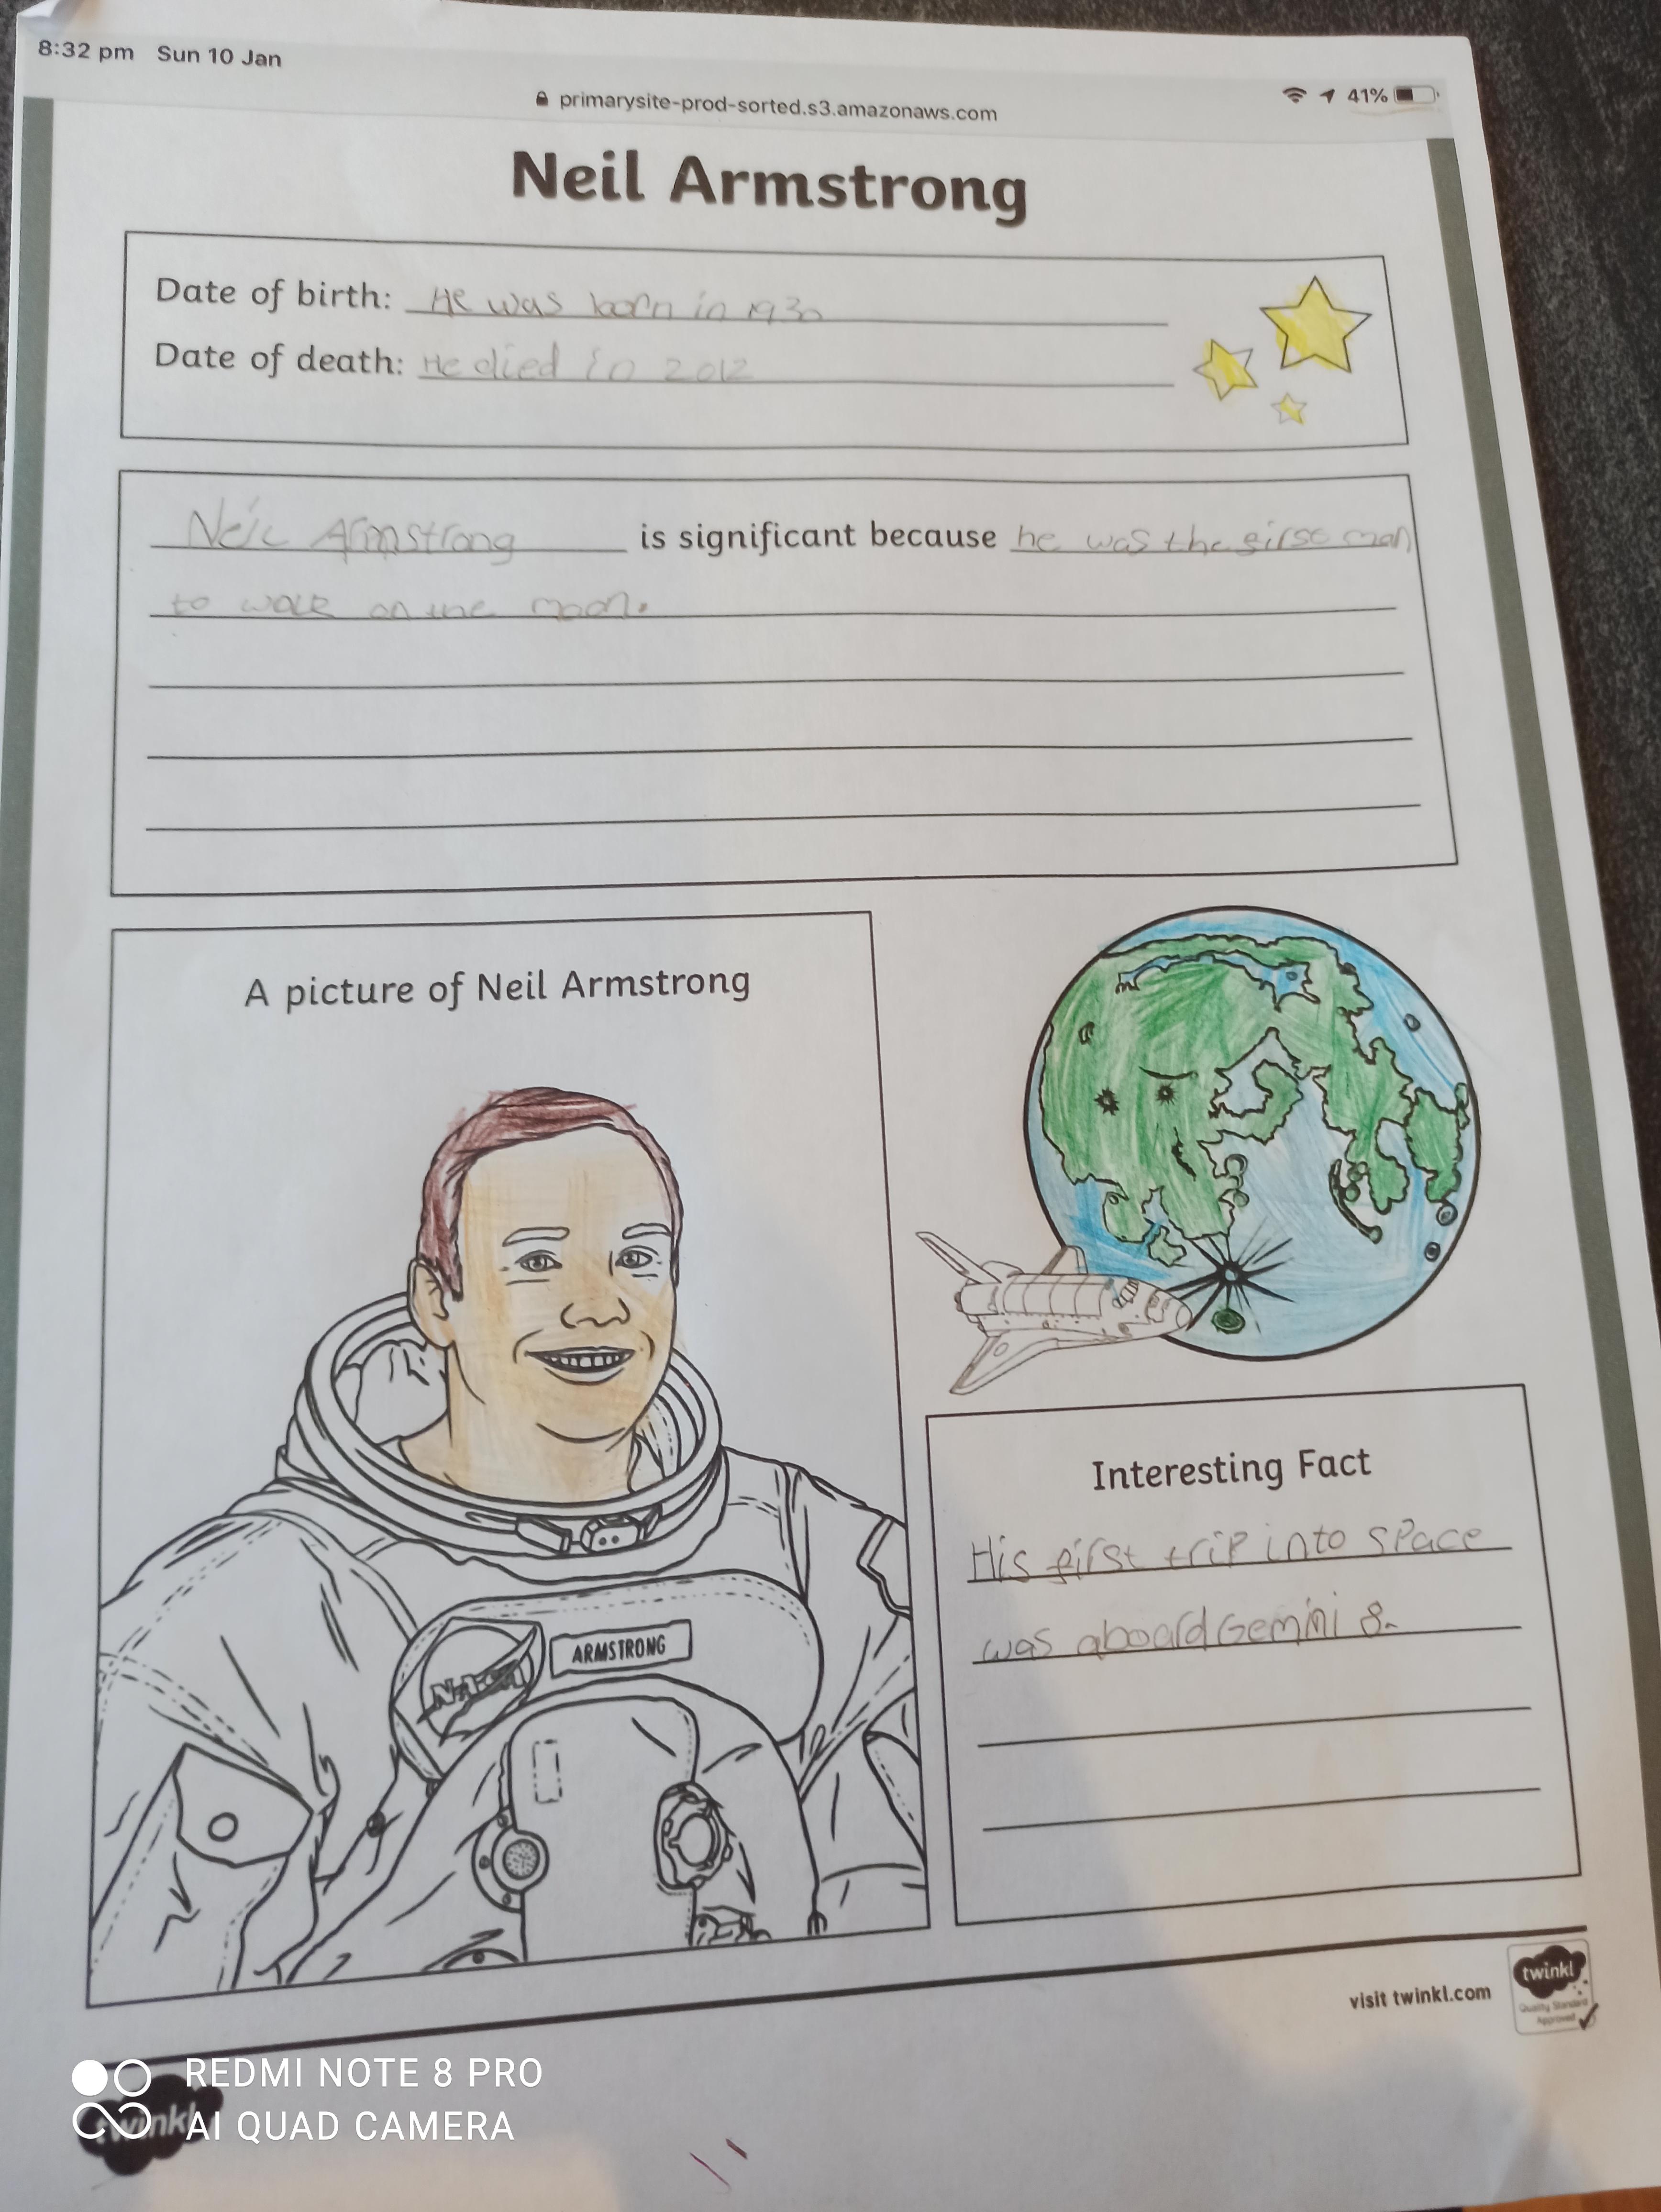 8:32 pm Sun 10 Jan
primarysite-prod-sorted.s3.amazonaws.com 41%
Neil Armstrong
Date of birth: He was born in 1930
Date of death: He died in 2012
Neil Armstrong is significant because he was the first man
to walk on the moon.
A picture of Neil Armstrong
NASA
ARMSTRONG
Interesting Fact
His first trip into space
was aboard Gemini 8.
visit twinkl.com
twinkl
Quality Standard
Approved
REDMI NOTE 8 PRO
twinkl
AI QUAD CAMERA